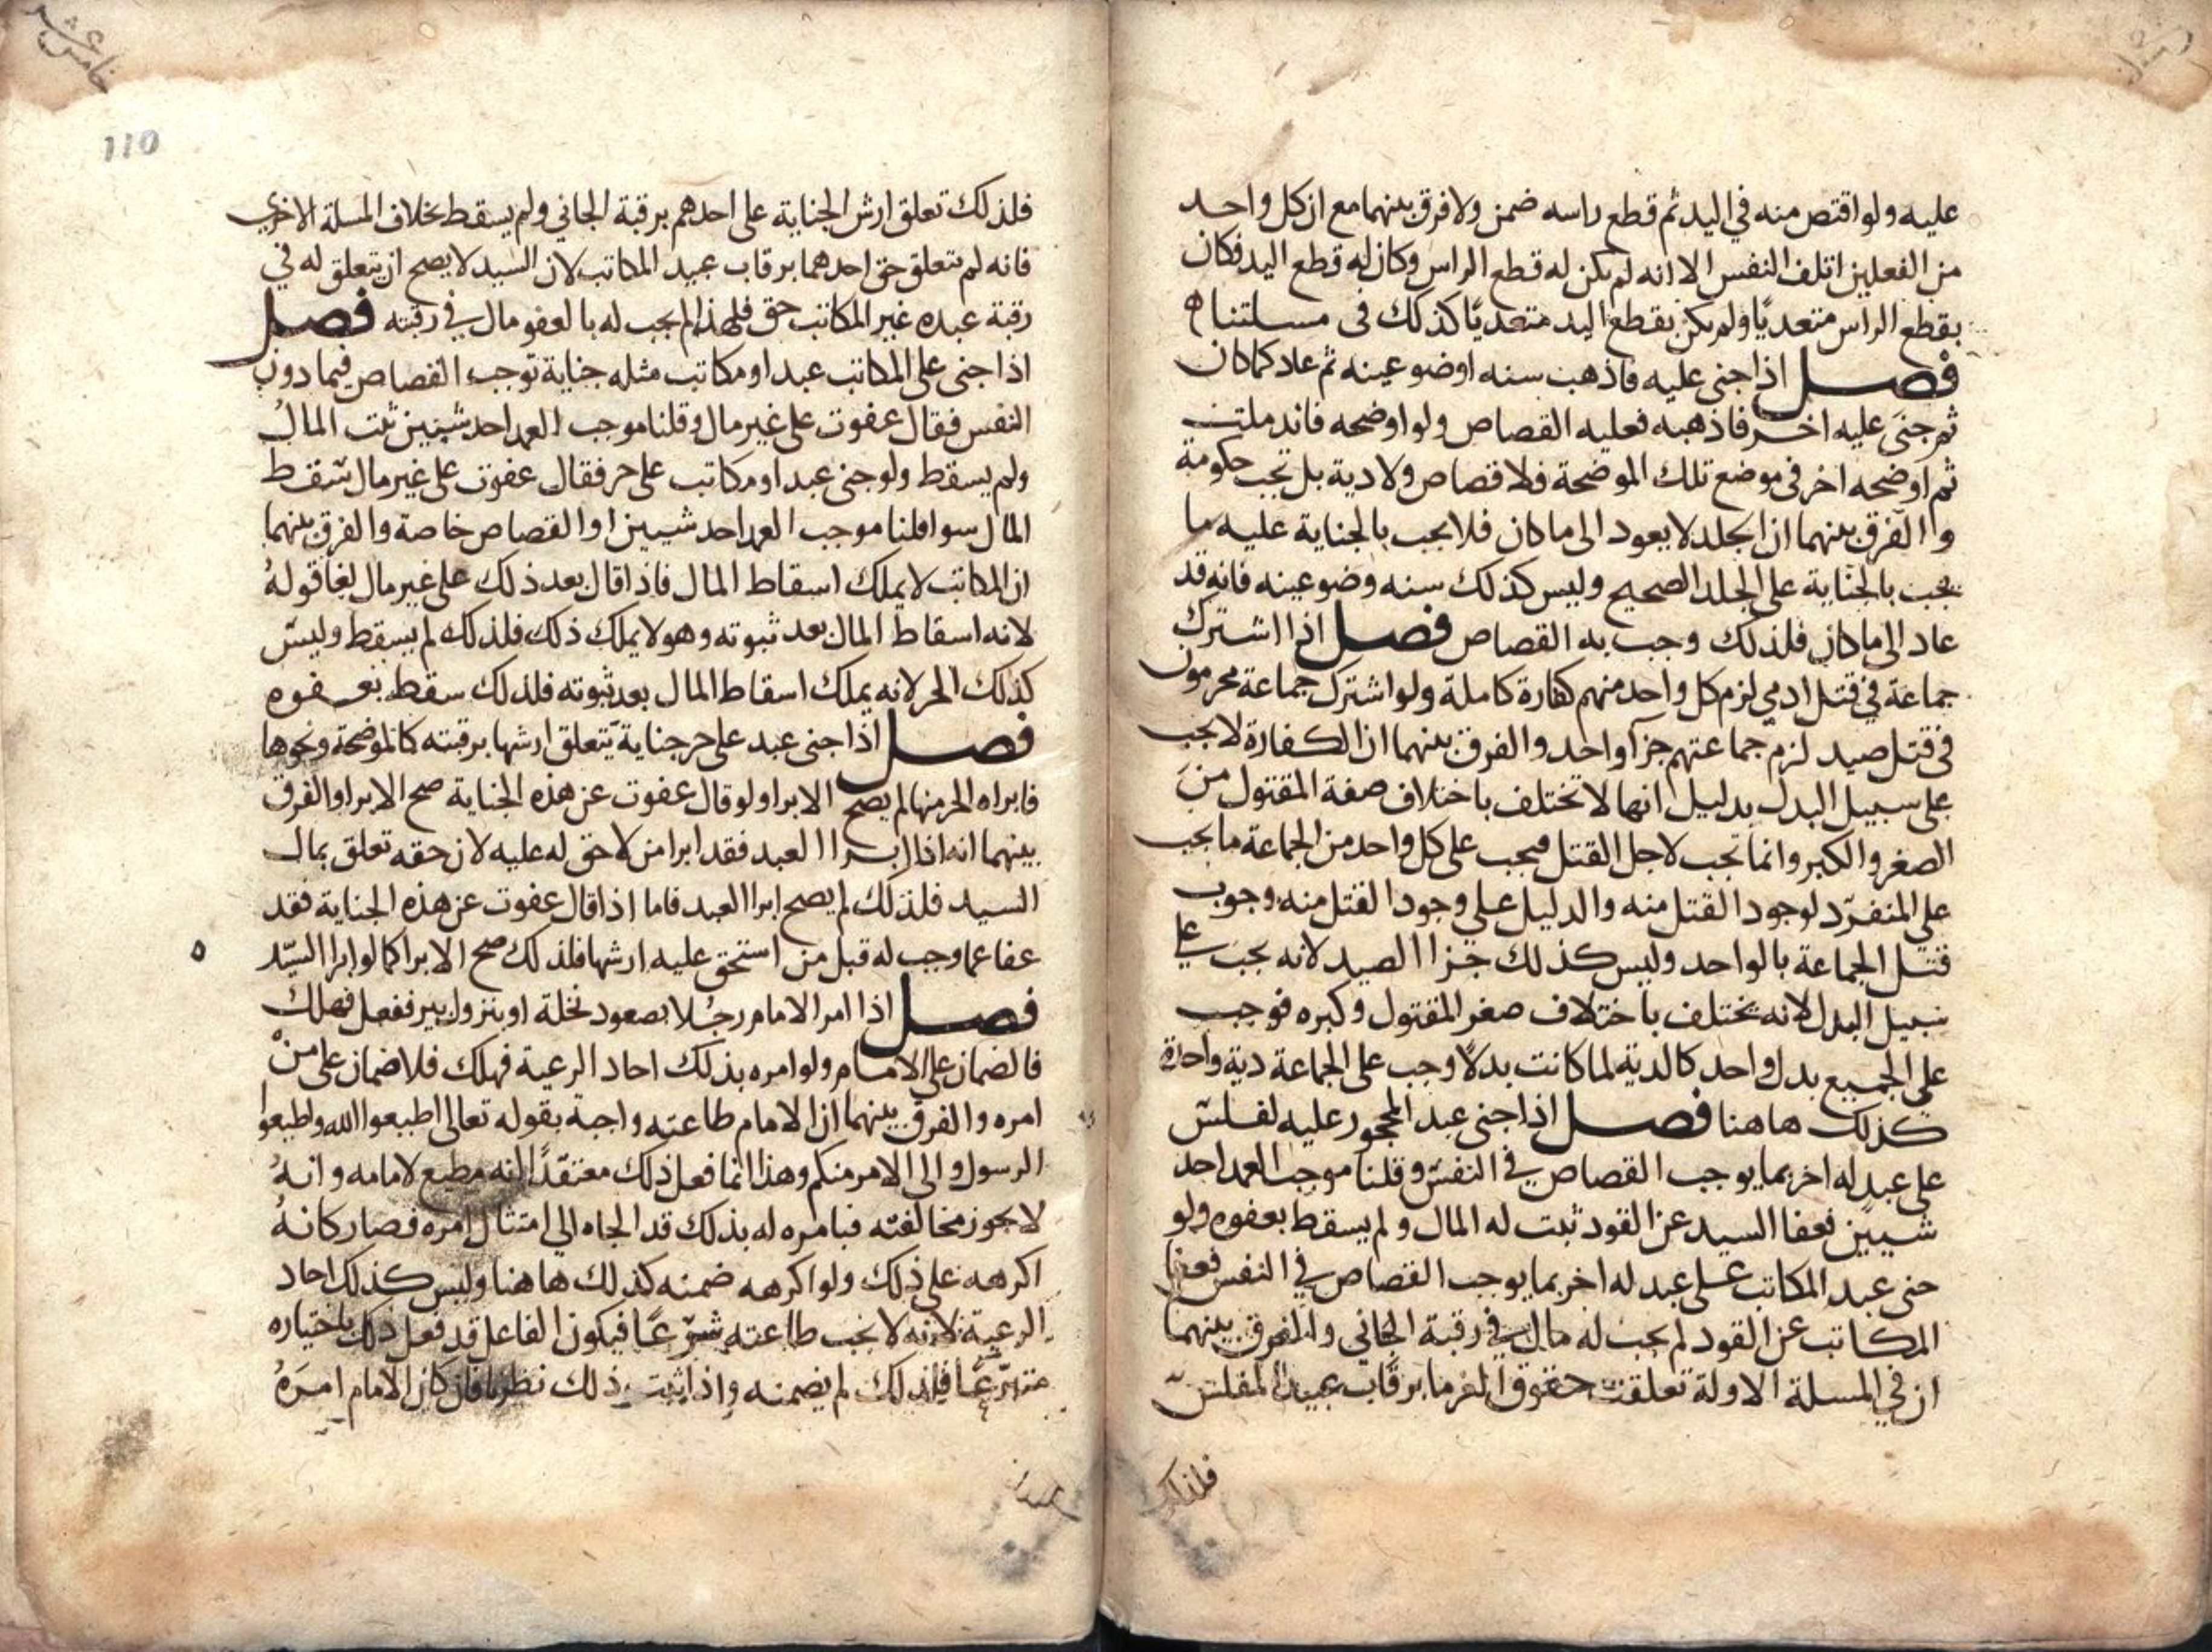 عليه ولو اقتص منه في اليد ثم قطع راسه ضمن ولا فرق بينهما مع ان كل واحد
من الفعلين اتلف النفس الا انه لم يكن له قطع الراس وكان له قطع اليد فكان
بقطع الراس متعديًا ولم يكن بقطع اليد متعديًا كذلك في مسلتنا ه
فصل اذا جنى عليه فاذهب سنه او ضو عينه ثم عاد كما كان
ثم جنى عليه اخر فاذهبه فعليه القصاص ولو اوضحه فاندملت
ثم اوضحه اخر في موضع تلك الموضحة فلا قصاص ولا دية بل تجب حكومة
والفرق بينهما ان الجلد لا يعود الى ما كان فلا يجب بالجناية عليه ما
يجب بالجناية على الجلد الصحيح وليس كذلك سنه وضو عينه فانه قد
عاد الى ما كان فلذلك وجب به القصاص فصل اذا اشترك
جماعة في قتل ادمي لزم كل واحد منهم كفارة كاملة ولو اشترك جماعة محرمون
في قتل صيد لزم جماعتهم جزآ واحد والفرق بينهما ان الكفارة لا يجب
على سبيل البدل بدليل انها لا تختلف باختلاف صفة المقتول من
الصغر والكبر وانما تجب لاجل القتل فيجب على كل واحد من الجماعة ما يجب
على المنفرد لوجود القتل منه والدليل على وجود القتل منه وجوب
قتل الجماعة بالواحد وليس كذلك جزا الصيد لانه يجب على
سبيل البدل لانه يختلف باختلاف صغر المقتول وكبره فوجب
على الجميع بدل واحد كالدية لما كانت بدلًا وجب على الجماعة دية واحدة
كذلك هاهنا فصل اذا جنى عبد المحجور عليه لفلس
على عبد له اخر بما يوجب القصاص في النفس وقلنا موجب العمد احد
شيين فعفا السيد عن القود ثبت له المال ولم يسقط بعفوه ولو
جنى عبد المكاتب على عبد له اخر بما يوجب القصاص في النفس فعفا
المكاتب عن القود لم يجب له مال في رقبة الجاني والفرق بينهما
ان في المسلة الاولة تعلقت حقوق الغرما برقاب عبيد المفلس
فلذلك
110
فلذلك تعلق ارش الجناية على احدهم برقبة الجاني ولم يسقط بخلاف المسلة الاخرى
فانه لم يتعلق حق احدهما برقاب عبيد المكاتب لان السيد لا يصح ان يتعلق له في
رقبة عبده غير المكاتب حق فلهذا لم يجب له بالعفو مال في رقبته فصل
اذا جنى على المكاتب عبد او مكاتب مثله جناية توجب القصاص فيما دون
النفس فقال عفوت على غير مال وقلنا موجب العمد احد شيين ثبت المال
ولم يسقط ولو جنى عبد او مكاتب على حر فقال عفوت على غير مال سقط
المال سوا قلنا موجب العمد احد شيين او القصاص خاصة والفرق بينهما
ان المكاتب لا يملك اسقاط المال فاذا قال بعد ذلك على غير مال لغا قوله
لانه اسقاط المال بعد ثبوته وهو لا يملك ذلك فلذلك لم يسقط وليس
كذلك الحر لانه يملك اسقاط المال بعد ثبوته فلذلك سقط بعفوه
فصل اذا جنى عبد على حر جناية يتعلق ارشها برقبته كالموضحة ونحوها
فابراه الحر منها لم يصح الابرا ولو قال عفوت عن هذه الجناية صح الابرا والفرق
بينهما انه اذا ابرا العبد فقد ابرا من لا حق له عليه لان حقه تعلق بمال
السيد فلذلك لم يصح ابرا العبد فاما اذا قال عفوت عن هذه الجناية فقد
عفا عما وجب له قبل من استحق عليه ارشها فلذلك صح الابرا كما لو ابرا السيد
فصل اذا امر الامام رجلا بصعود نخلة او بنزول بير ففعل فهلك
فالضمان على الامام ولو امره بذلك احاد الرعية فهلك فلا ضمان على من
امره والفرق بينهما ان الامام طاعته واجبة بقوله تعالى اطيعوا الله واطيعوا
الرسول والى الامر منكم وهذا انما فعل ذلك معتقدًا انه مطيع لامامه وانه
لا يجوز مخالفته فبامره له بذلك قد الجاه الى امتثال امره فصار كانه
اكرهه على ذلك ولو اكرهه ضمنه كذلك هاهنا وليس كذلك احاد
الرعية لانه لا يجب طاعته شرعًا فيكون الفاعل قد فعل ذلك باختياره
متبرعًا فلذلك لم يضمنه واذا ثبت ذلك نظرنا فان كان الامام امره